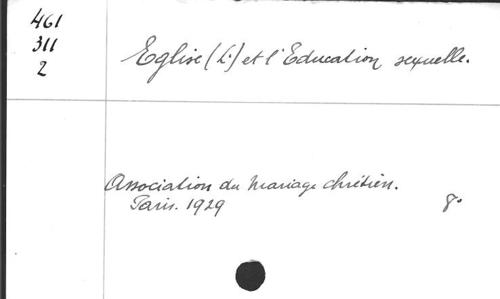 461
311
2
Eglise (L') et l'Education sexuelle.
Association du Mariage chrétien.
Paris. 1929
8°